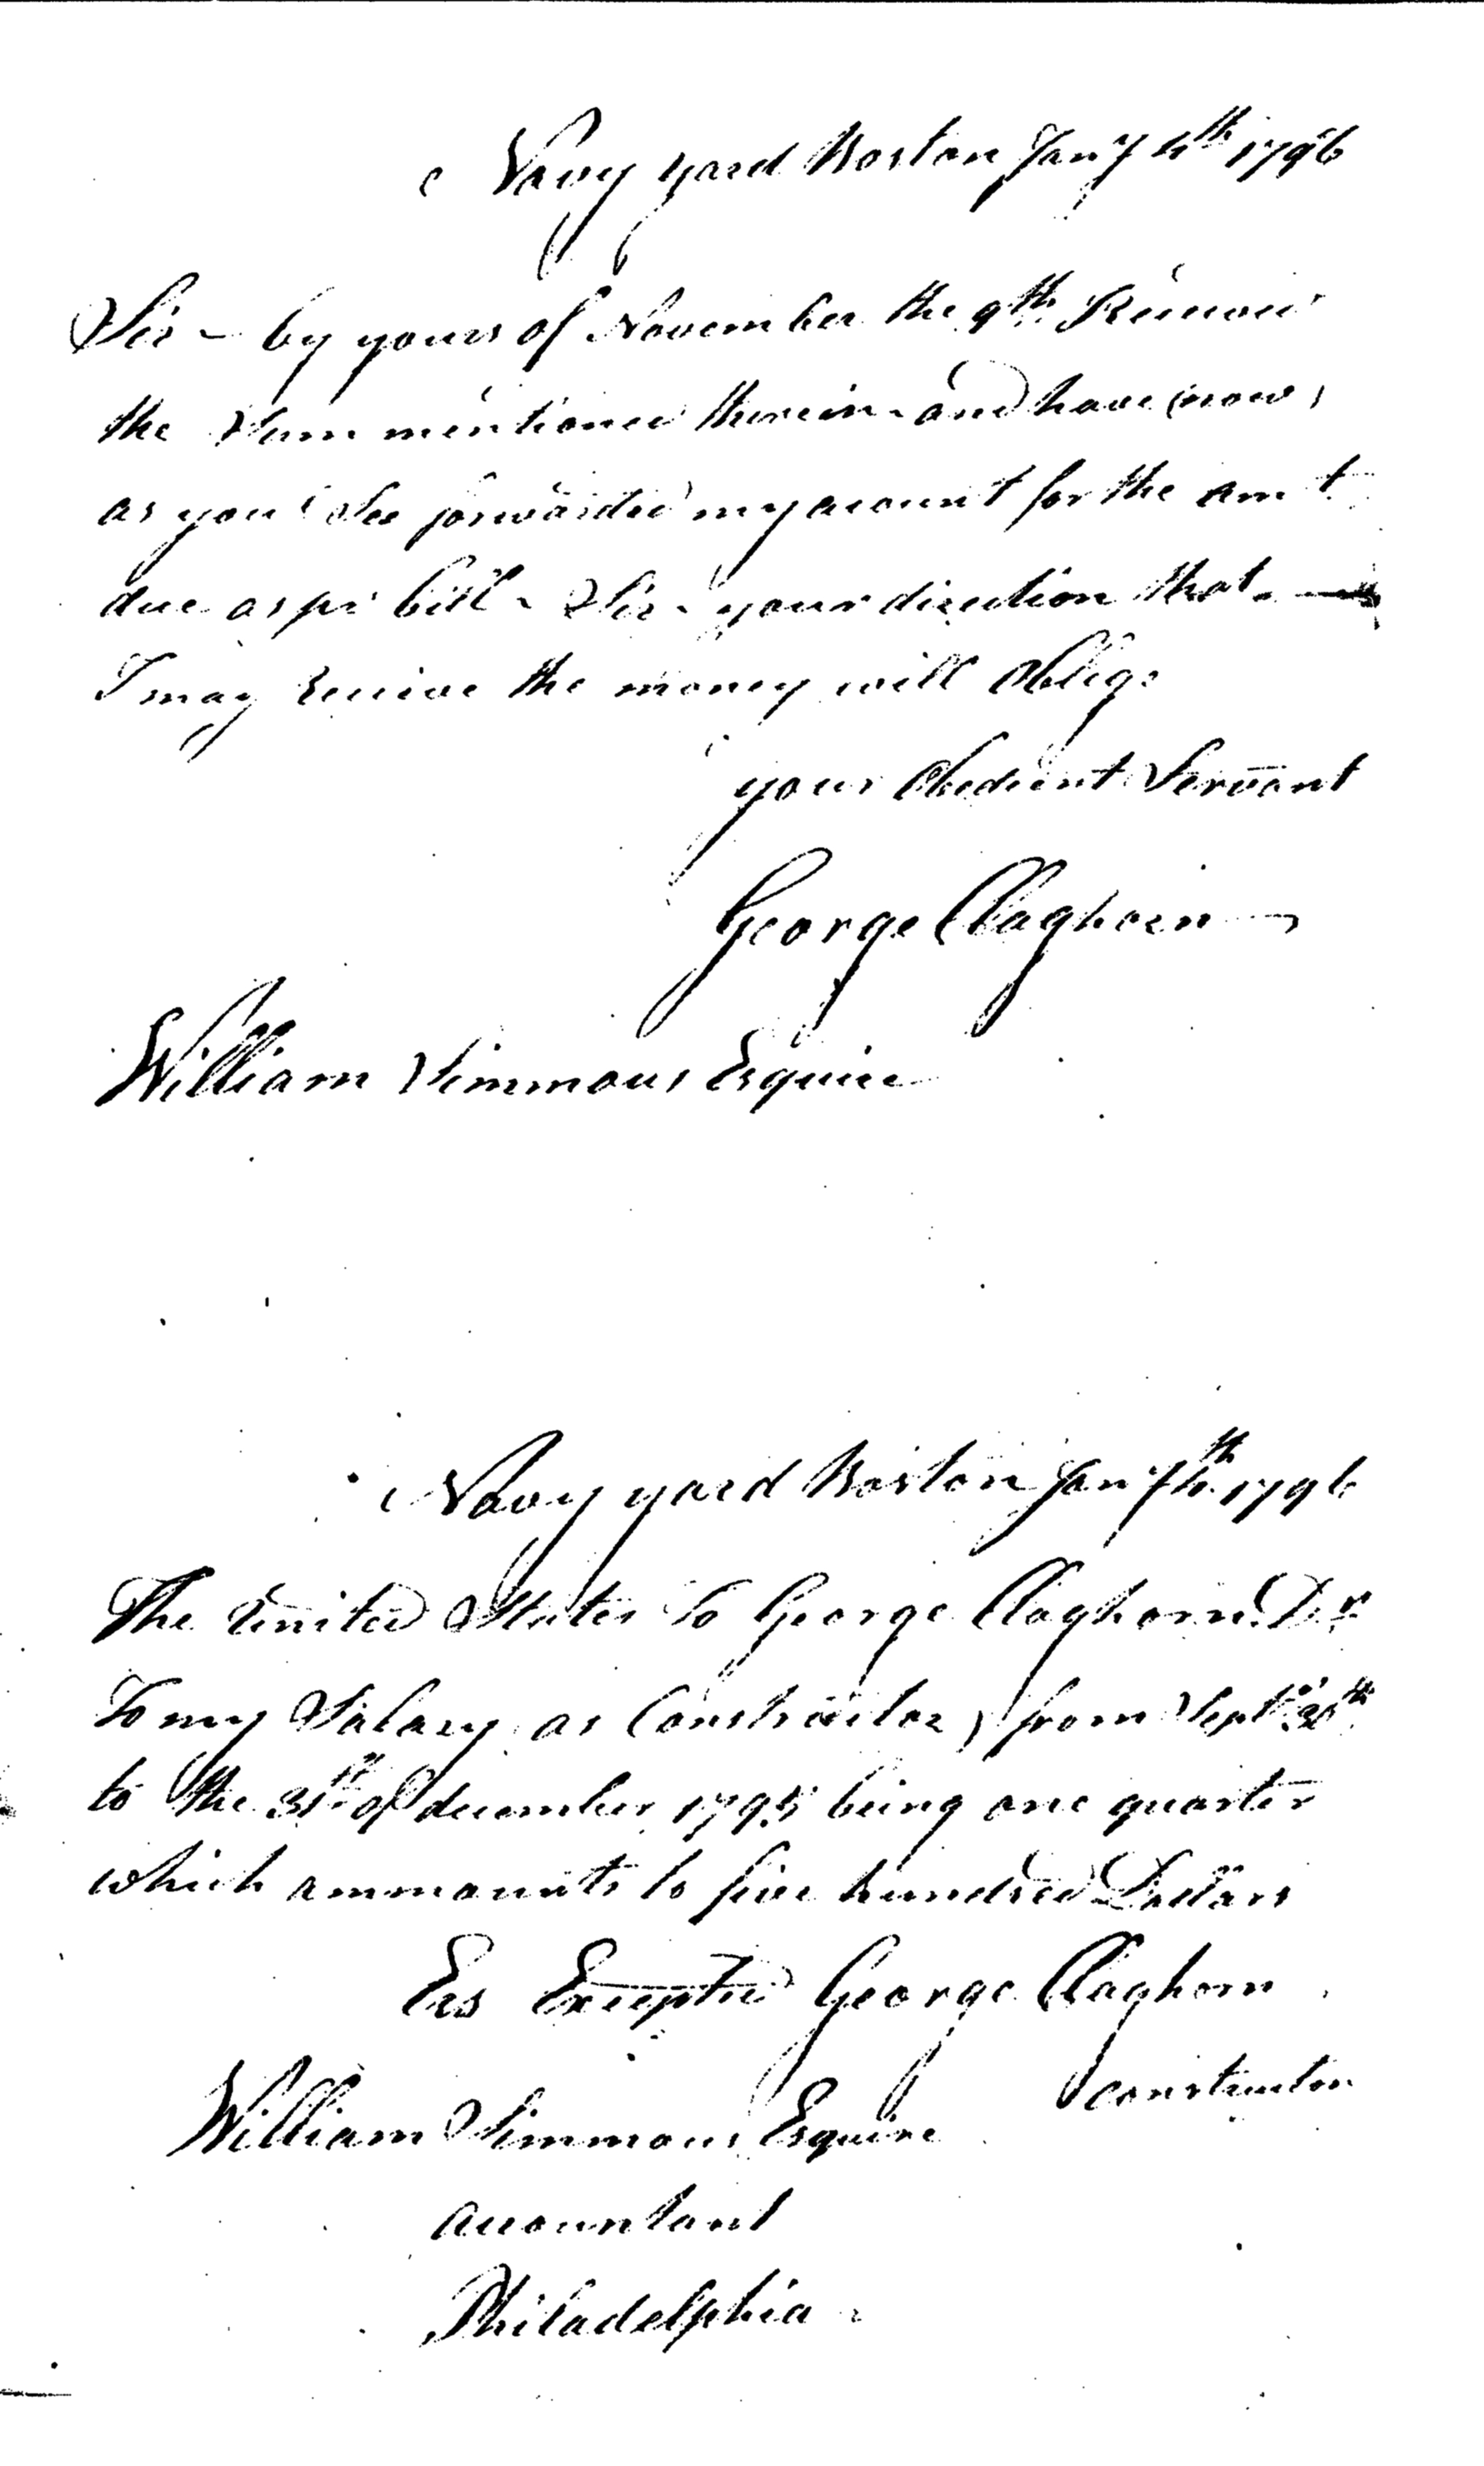 Navy yard Boston Jany 4th 1796
Sir - by yours of November the 9th Received
the Sum mentioned therein - and have now
as you See forwarded my acount for the amt
due as pr bill - Sir - your direction that -
I may Receive the money will Oblige
your Obedient Servant
George Claghorn
William Simmons Esquire
Navy yard Boston Jany 4th 1796
The United States To George Claghorn Dr
To my Salary as Constructor from Sept 30th
to the 31st of december 1795 being one quarter
which ammounts to five hundred Dollars
Ers Excepted George Claghorn
constructor
William Simmons Esquire
accountant
Philadelphia -